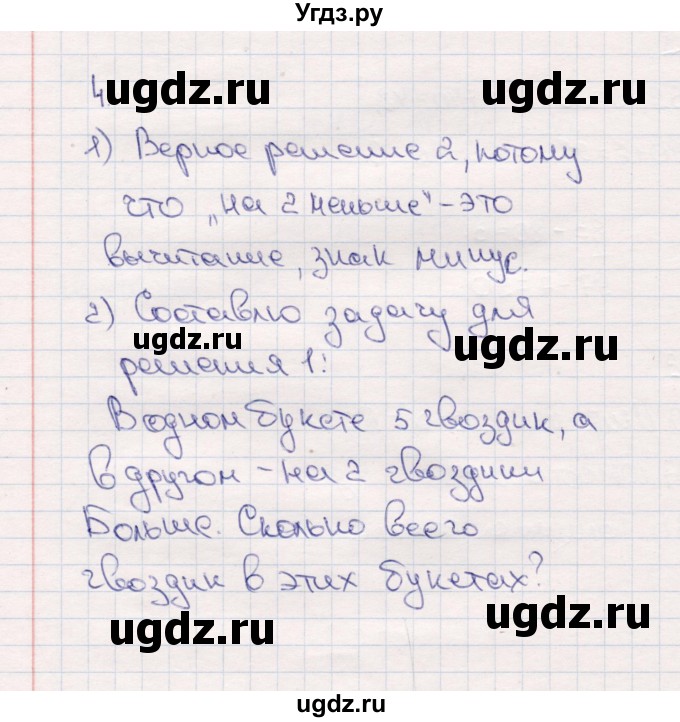 Угдз.ру
4
ugdz.ru
ugdz.ru
1) Верное решение 2, потому
что „на 2 меньше" - это
вычитание, знак минус.
2) Составлю задачу для
ugdz.ru
ugdz.ru
решения 1:
В одном букете 5 гвоздик, а
в другом - на 2 гвоздики
больше. Сколько всего
гвоздик в этих букетах?
ugdz.ru
ugdz.ru
ugdz.ru